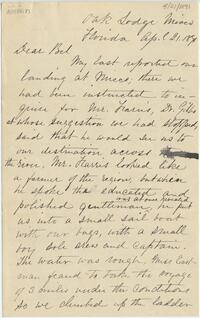 4/21/1891
Oak Lodge Micco
Florida Apl. 21. 1891
Dear Bed
My last reported our
landing at Micco, there we
had been instructed to in-
quire for Mr. Harris, Dr. Gibbs
at whose suggestion we had stopped,
said that he would see us to
our destination across
the river, Mr. Harris looked like
a farmer of the region, but when
he spoke the educated and
was at once revealed
polished gentleman, he put
us into a small sail boat
with our bags, with a small
boy sole crew and captain.
The water was rough. Miss East-
man feared to take the voyage
of 3 miles under the conditions
so we climbed up the ladder